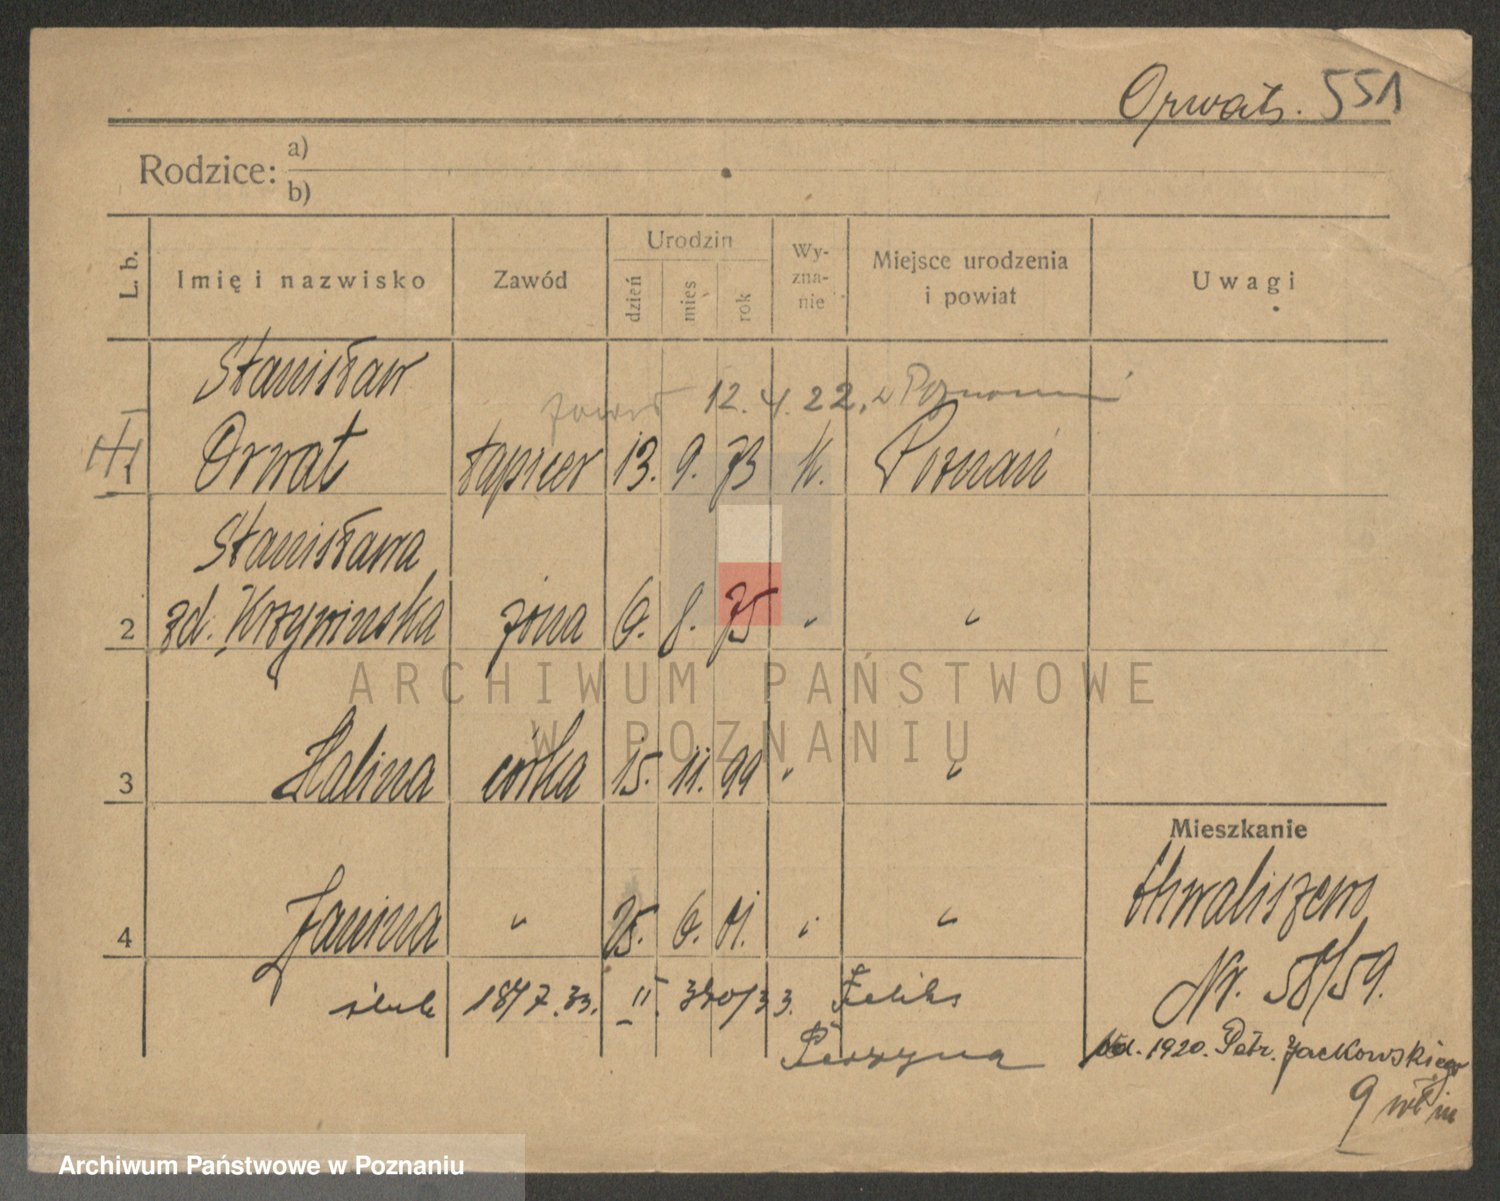 Orwat. 551
Rodzice: a)
b)
L. b.
Imię i nazwisko
Zawód
Urodzin
dzień
mies
rok
Wy-
zna-
nie
Miejsce urodzenia
i powiat
Uwagi
Stanisław
12. 4. 22. w Poznaniu
1
Orwat
tapicer 13. 9. 73 k. Poznań
Stanisława
2 zd. Krzywinska żona 6. 8. 75 " "
3 Halina córka 15. 11. 99 " "
4 Janina " 25. 6. 01. " "
ślub 18/7.33. II. 320/33. Feliks
Mieszkanie
Chwaliszewo
Nr. 58/59.
1920. Piotr. Jackowskiego
9
ARCHIWUM PAŃSTWOWE
W POZNANIU
Archiwum Państwowe w Poznaniu